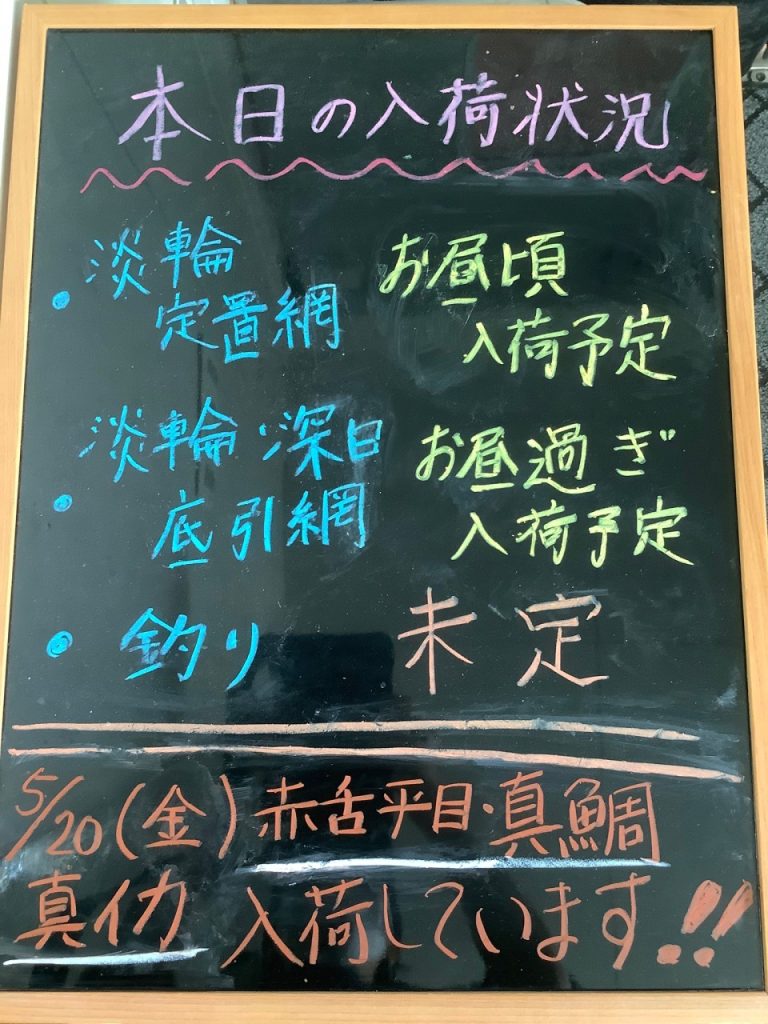 本日の入荷状況
・淡輪 お昼頃
定置網 入荷予定
・淡輪・深日 お昼過ぎ
底引網 入荷予定
・釣り 未定
5/20(金)赤舌平目・真鯛
真イカ 入荷しています!!